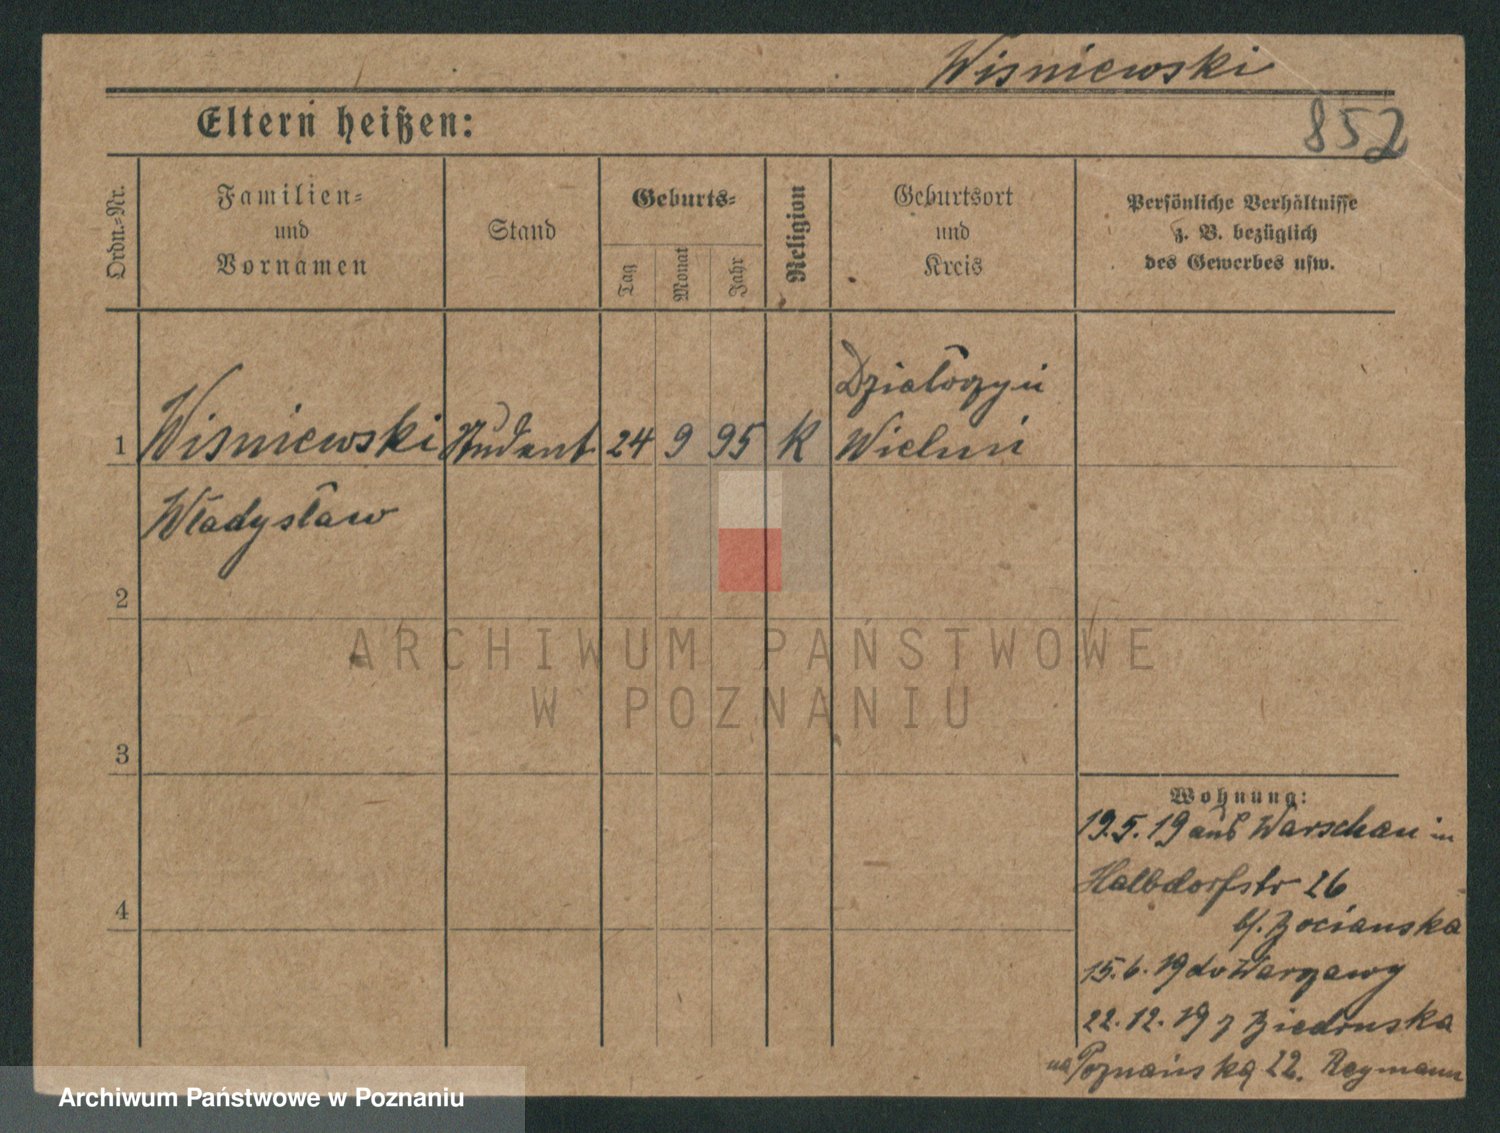 Wisniewski
852
Eltern heißen:
Ordn.-Nr.
Familien-
und
Vornamen
Stand
Geburts-
Tag
Monat
Jahr
Religion
Geburtsort
und
Kreis
Persönliche Verhältnisse
z. B. bezüglich
des Gewerbes usw.
Działoszyn
1 Wisniewski Student 24 9 95 K Wieluń
Władysław
2
3
4
Wohnung:
19.5.19 aus Warschau in
Halbdorfstr 26
b/. Bocianska
15.6.19 do Warszawy
22.12.19 z Biedruska
na Poznańską 22. Reymann
ARCHIWUM PAŃSTWOWE
W POZNANIU
Archiwum Państwowe w Poznaniu